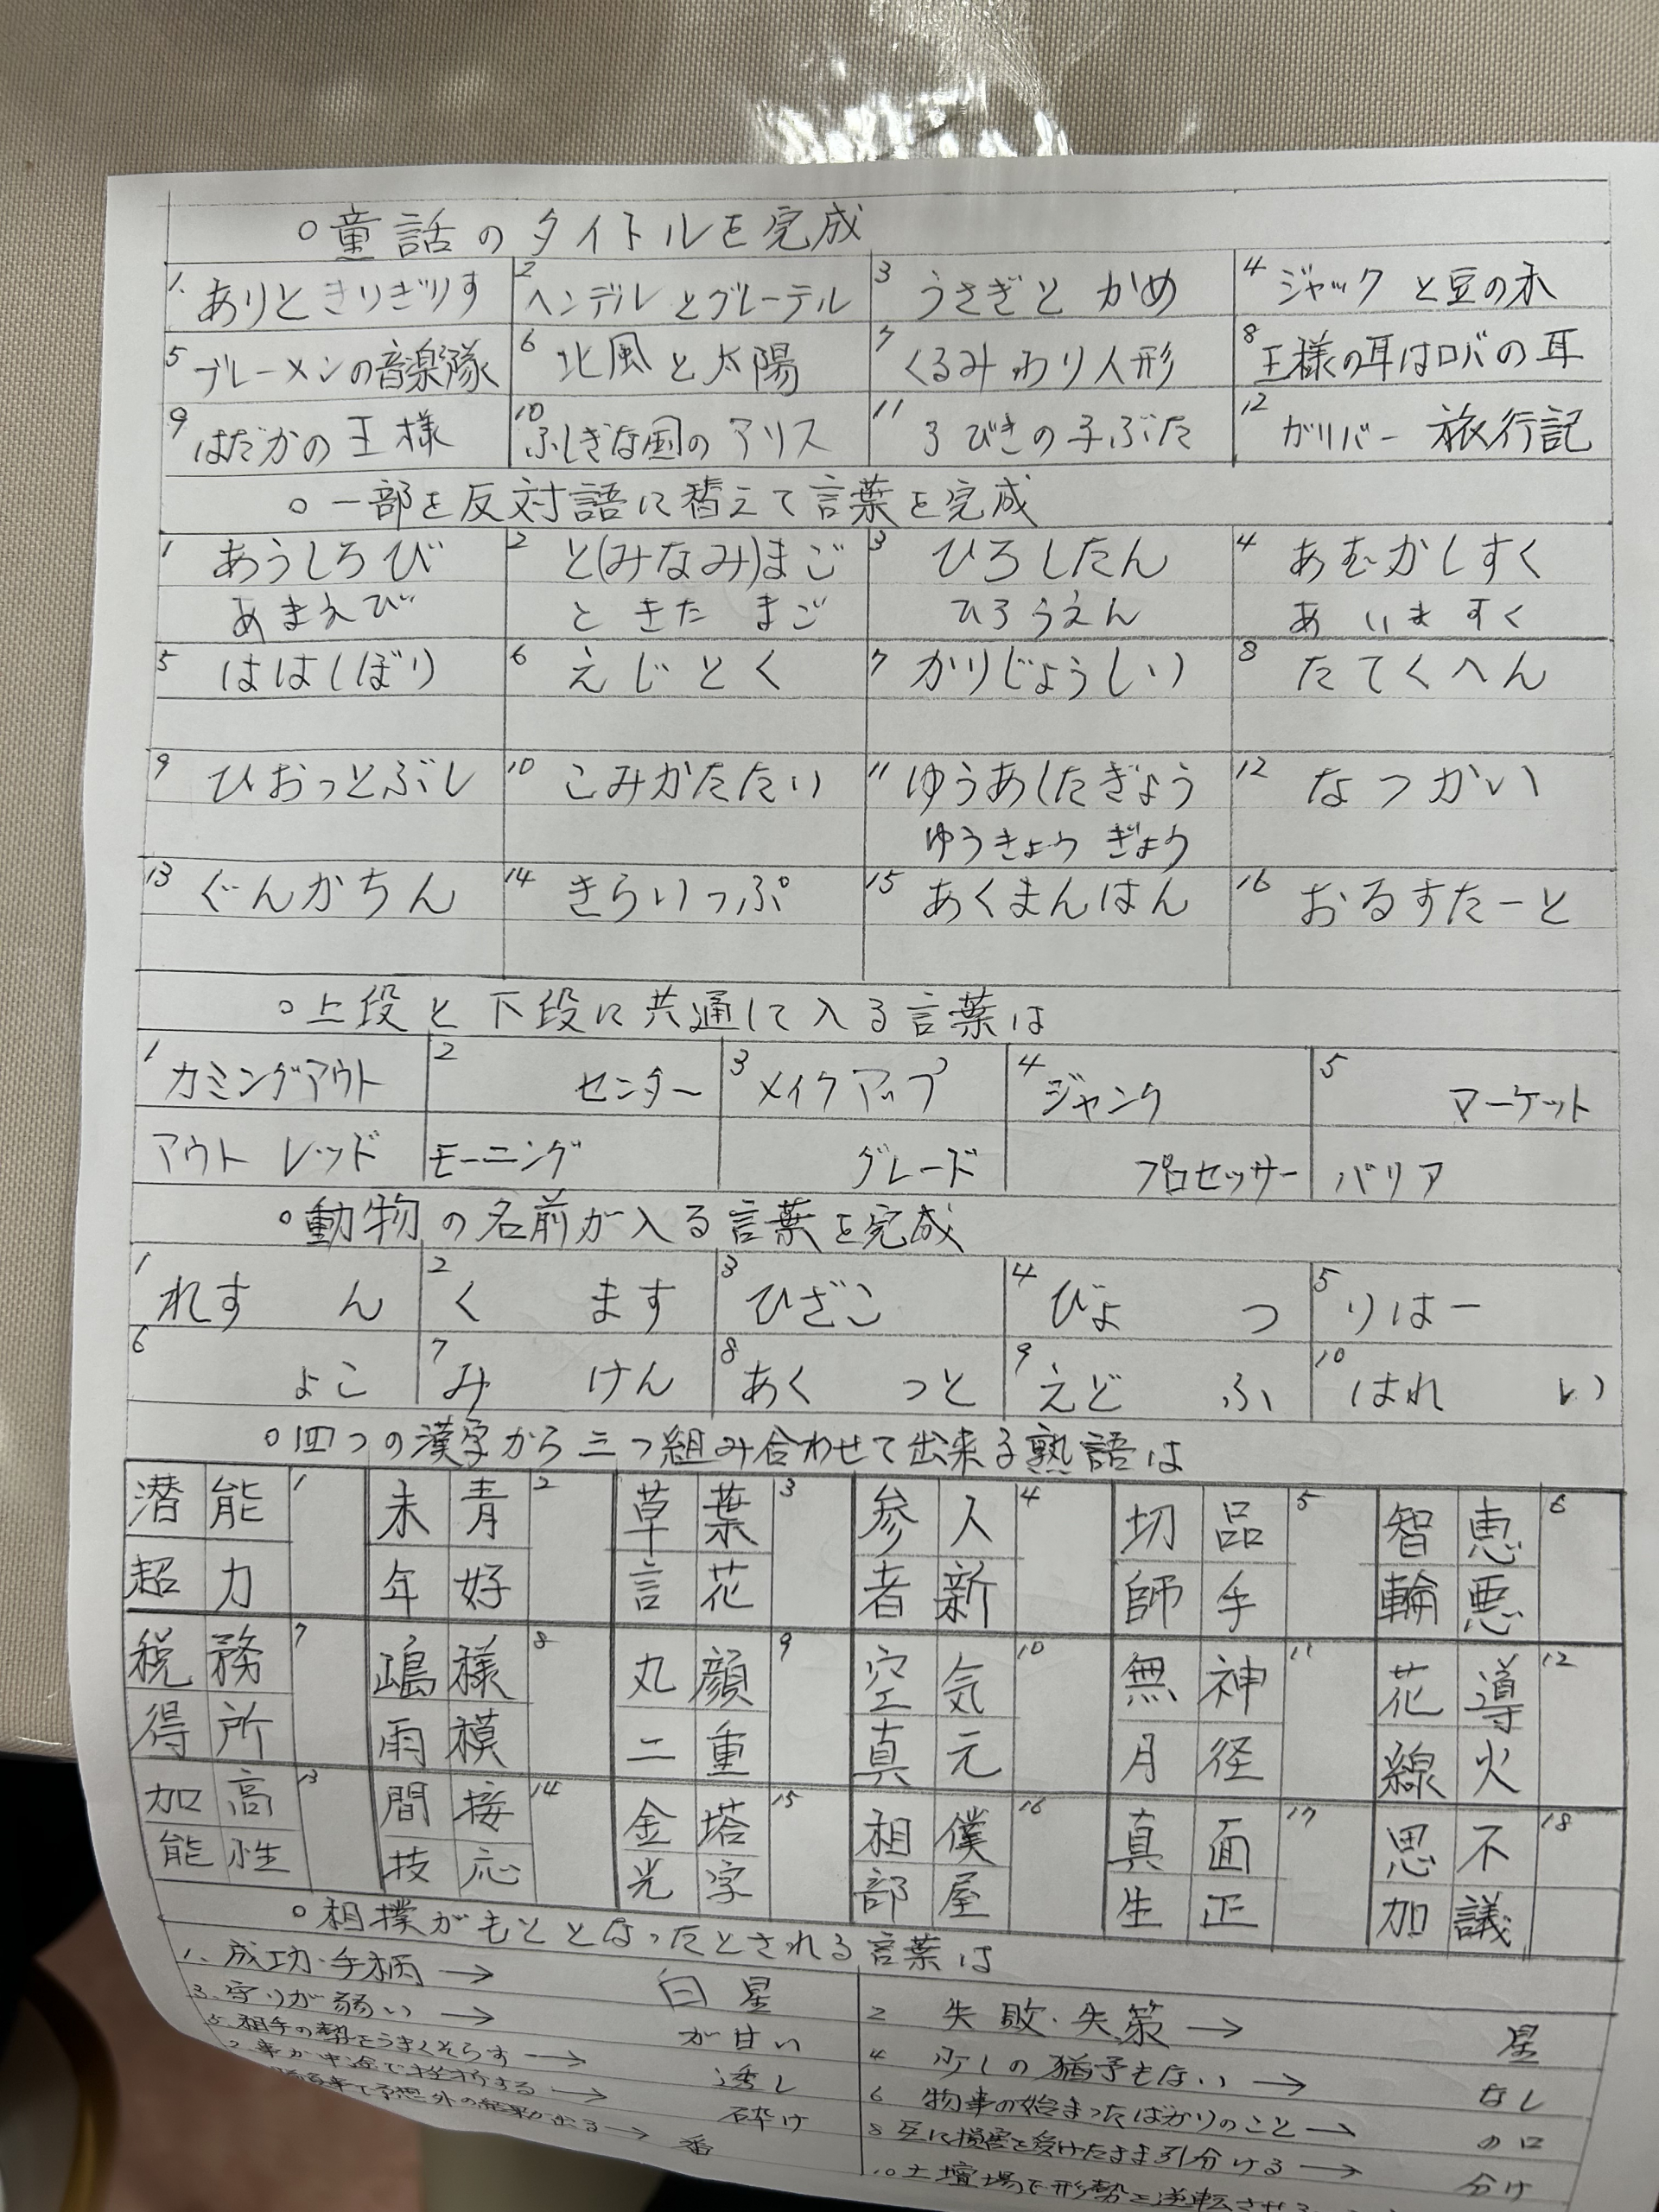 ○童話のタイトルを完成
1. ありときりぎりす 2 ヘンデルとグレーテル 3 うさぎとかめ 4 ジャックと豆の木
5 ブレーメンの音楽隊 6 北風と太陽 7 くるみわり人形 8 王様の耳はロバの耳
9 はだかの王様 10 ふしぎな国のアリス 11 3びきの子ぶた 12 ガリバー旅行記
○一部を反対語に替えて言葉を完成
1 あうしろび 2 と(みなみ)まご 3 ひろしたん 4 あむかしすく
あまえび ときたまご ひろうえん あいますく
5 ははしぼり 6 えじとく 7 かりじょうしい 8 たてくへん
9 ひおっとぶし 10 こみかたたい 11 ゆうあしたぎょう 12 なつかい
ゆうきょうぎょう
13 ぐんかちん 14 きらいっぷ 15 あくまんはん 16 おるすたーと
○上段と下段に共通して入る言葉は
1 カミングアウト 2 センター 3 メイクアップ 4 ジャンク 5 マーケット
アウトレッド モーニング グレード プロセッサー バリア
○動物の名前が入る言葉を完成
1 れす ん 2 く ます 3 ひざこ 4 びょ つ 5 りはー
6 ょこ 7 み けん 8 あく っと 9 えど ふ 10 はれ い
○四つの漢字から三つ組み合わせて出来る熟語は
潜能 1 未青 2 草葉 3 参人 4 切品 5 智恵 6
超力 年好 言花 者新 師手 輪悪
税務 7 嶋様 8 丸顔 9 空気 10 無神 11 花導 12
得所 雨模 二重 真元 月径 線火
加高 13 間接 14 金塔 15 相僕 16 真面 17 思不 18
能性 技応 光字 部屋 生正 加議
○相撲がもととなったとされる言葉は
1. 成功・手柄 → 白星
2 失敗・失策 → 星
3. 守りが弱い → が甘い
4 少しの猶予もない → なし
5. 相手の勢をうまくそらす → 透し
6 物事の始まったばかりのこと → の口
事が中途で挫折する → 砕け
8 互に損害を受けたまま引分ける → 分け
予想外の結果が出る → 番
10 土壇場で形勢を逆転させる